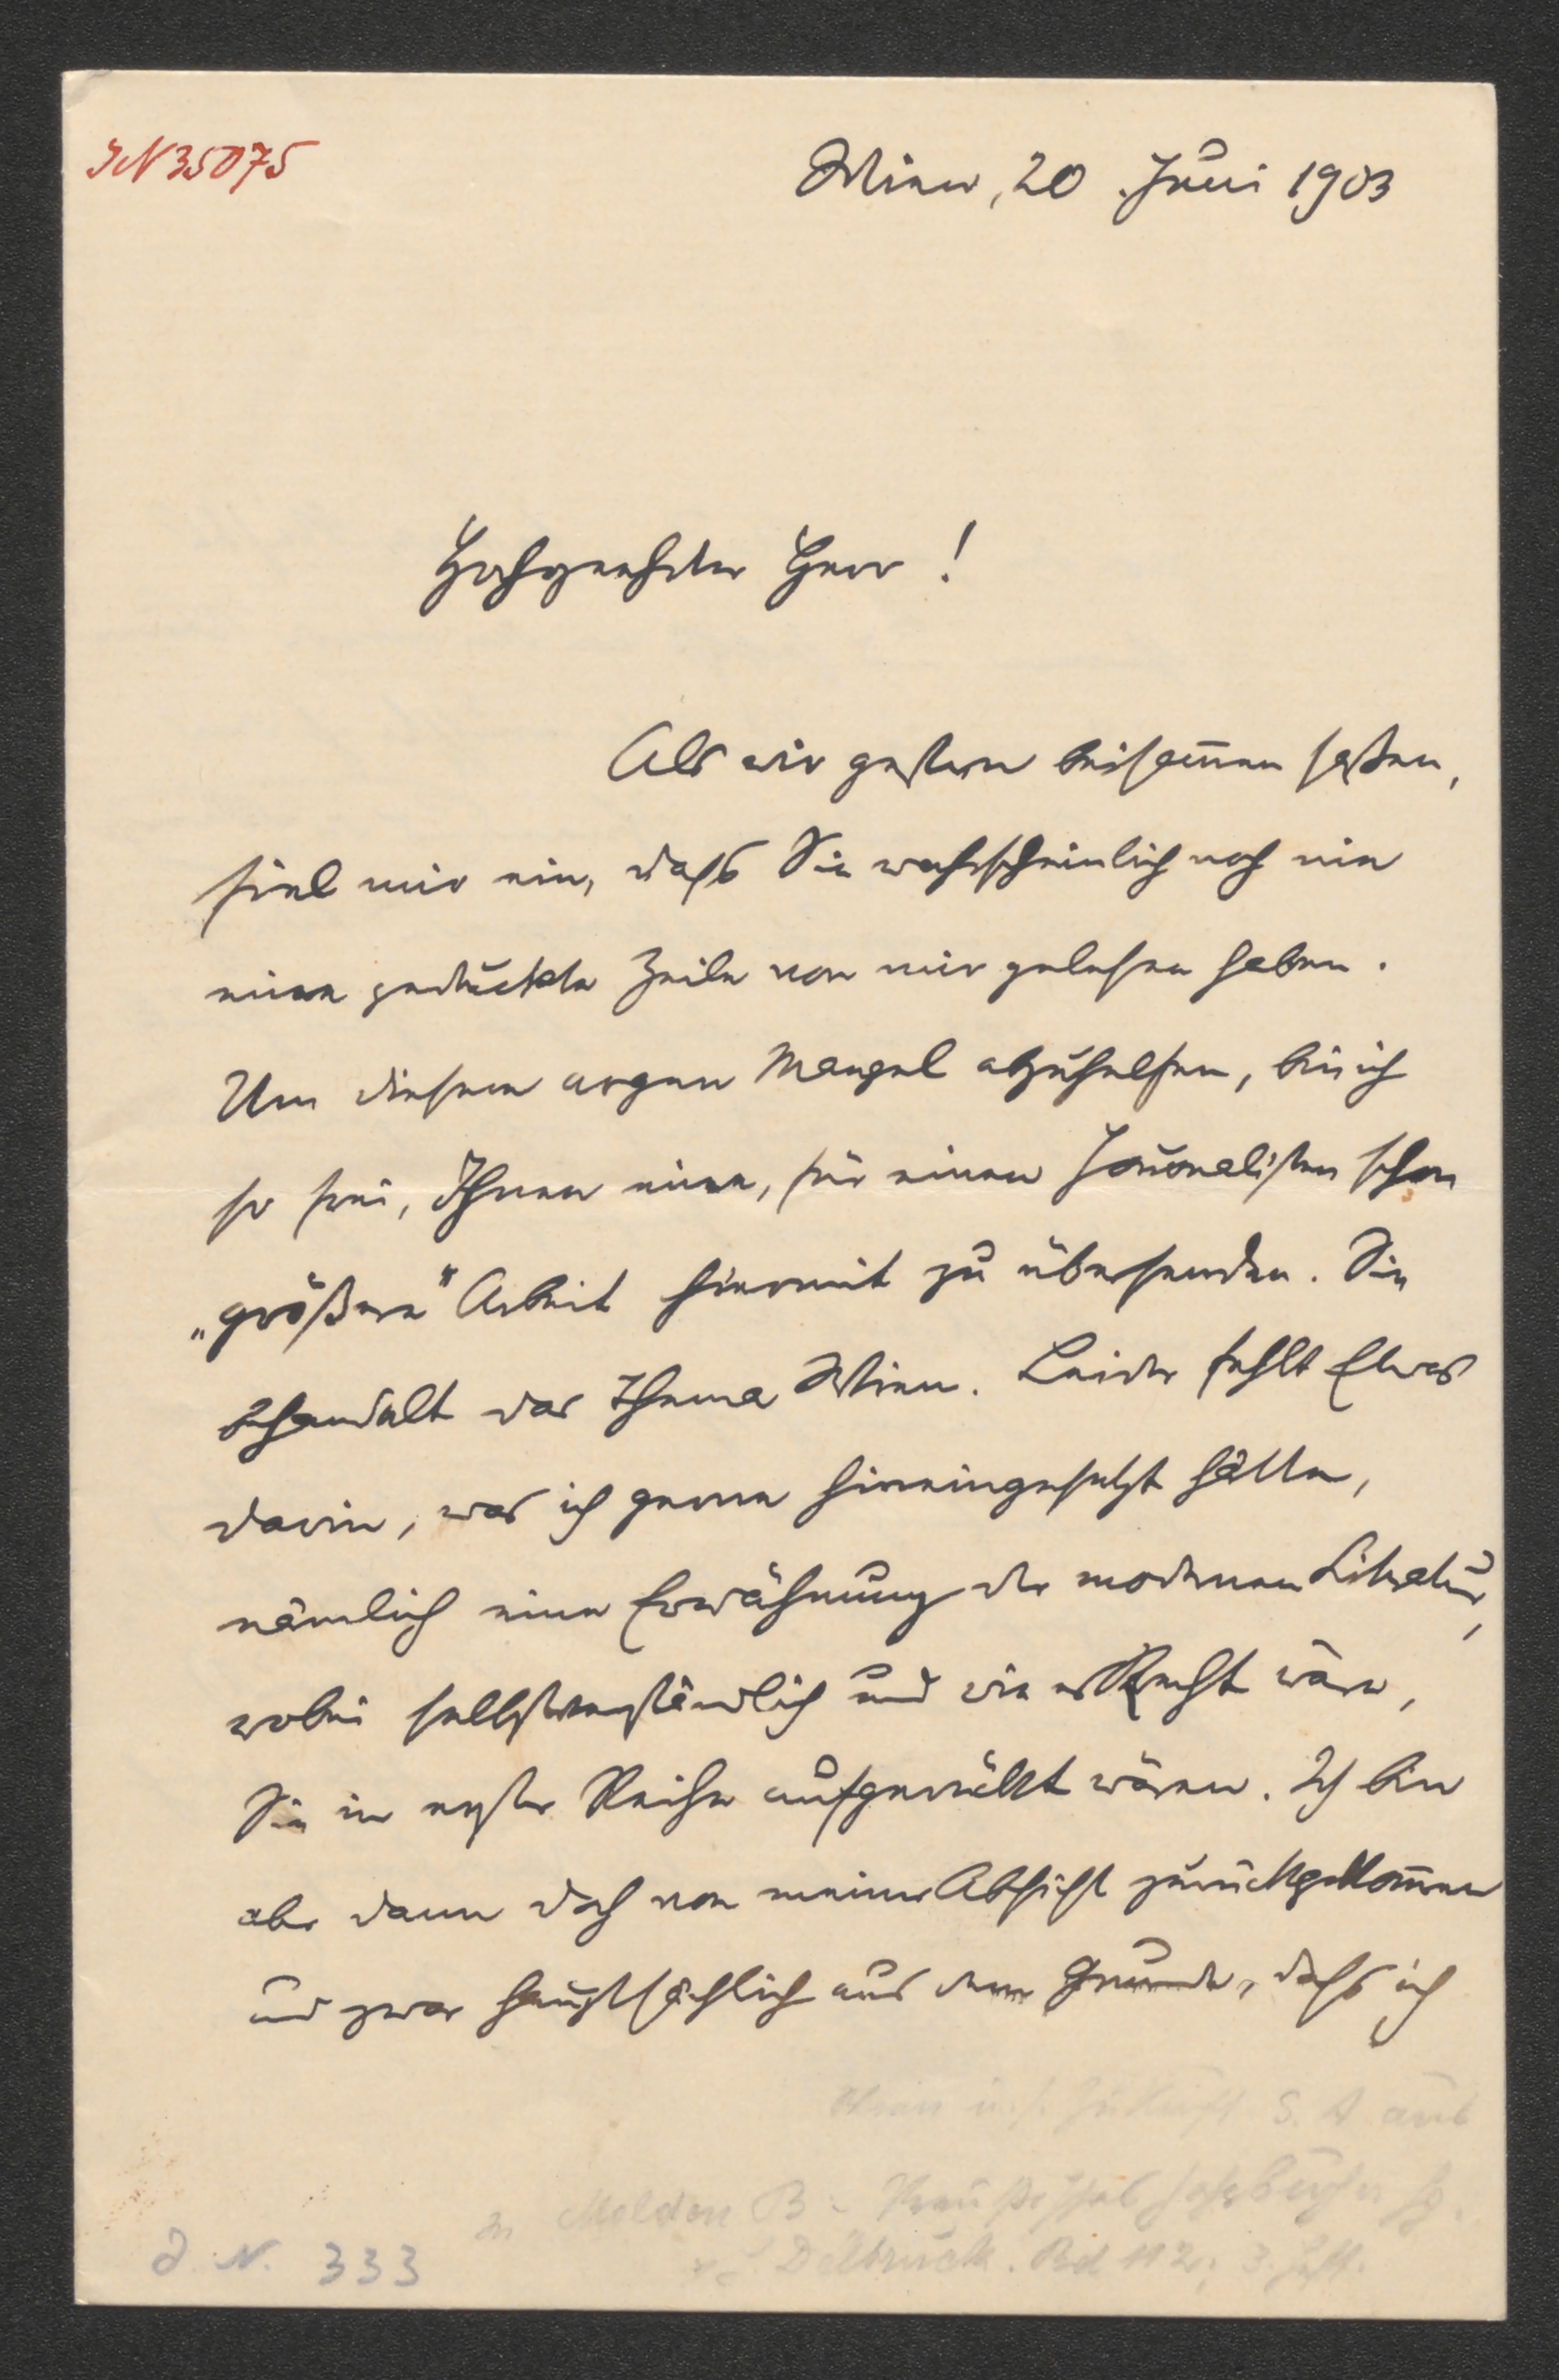 IN 35075
Wien, 20 Juni 1903
Hochgeehrter Herr!
Als wir gestern beisam̄en saßen,
fiel mir ein, dass Sie wahrscheinlich noch nie
eine gedruckte Zeile von mir gelesen haben.
Um diesem argen Mangel abzuhelfen, bin ich
so frei, Ihnen eine, für einen Journalisten schon
„größere“ Arbeit hiermit zu übersenden. Sie
behandelt das Thema Wien. Leider fehlt Etwas
darin, was ich gerne hineingesetzt hätte,
nämlich eine Erwähnung der modernen Literatur,
wobei selbstverständlich und wie es Recht wäre,
Sie in erster Reihe aufgerückt wären. Ich bin
aber dann doch von meiner Absicht zurückgekom̄en
und zwar hauptsächlich aus dem Grunde, dass ich
S. A. aus
Molden B - Preußische Jahrbücher
Delbrück. Bd 112, 3. Heft.
J. N. 333